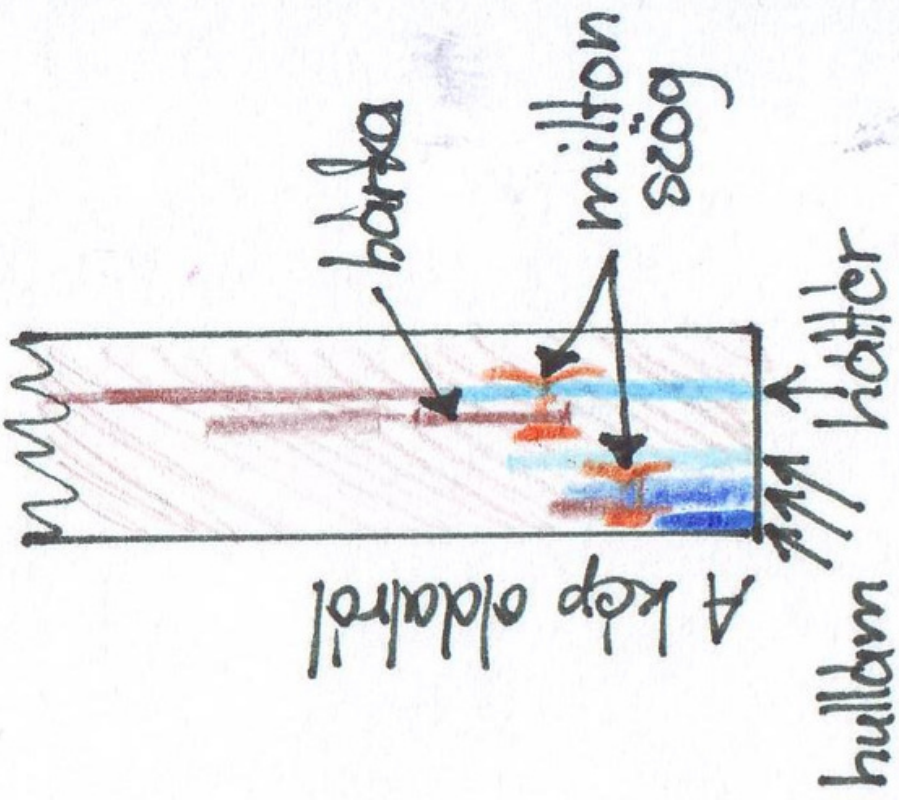 bárka
milton
szög
háttér
hullám
A kép oldalról